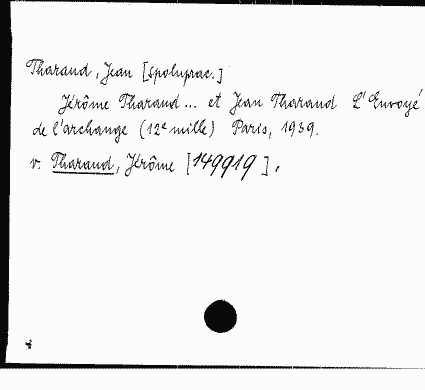 Tharaud, Jean [spoluprac.]
Jérôme Tharaud... et Jean Tharaud L'Envoyé
de l'archange (12e mille) Paris, 1939.
v. Tharaud, Jérôme [149919].